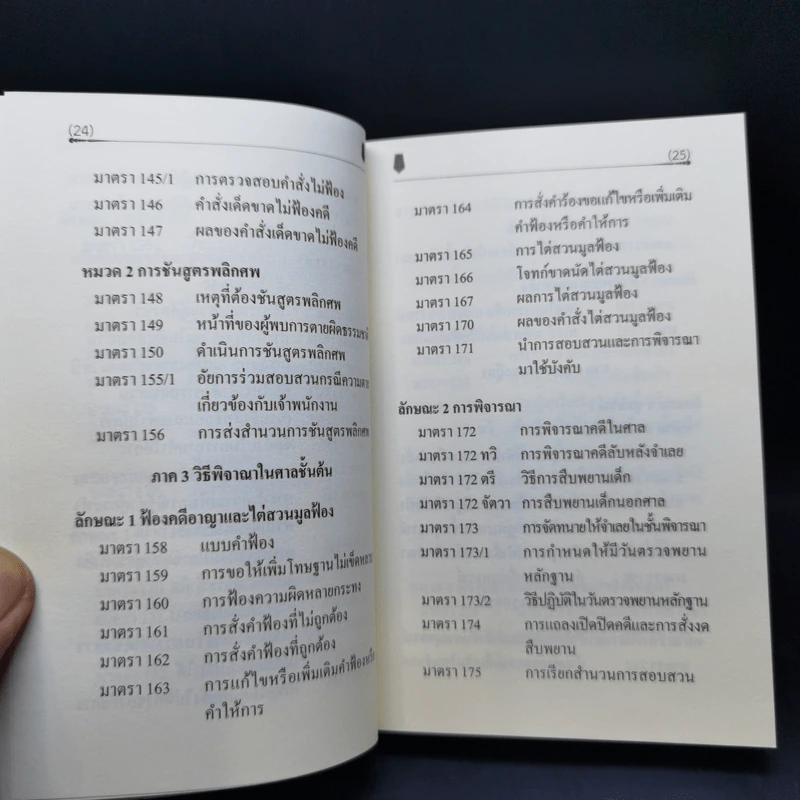 (24)
มาตรา 145/1 การตรวจสอบคำสั่งไม่ฟ้อง
มาตรา 146 คำสั่งเด็ดขาดไม่ฟ้องคดี
มาตรา 147 ผลของคำสั่งเด็ดขาดไม่ฟ้องคดี
หมวด 2 การชันสูตรพลิกศพ
มาตรา 148 เหตุที่ต้องชันสูตรพลิกศพ
มาตรา 149 หน้าที่ของผู้พบการตายผิดธรรมชาติ
มาตรา 150 ดำเนินการชันสูตรพลิกศพ
มาตรา 155/1 อัยการร่วมสอบสวนกรณีความตาย
เกี่ยวข้องกับเจ้าพนักงาน
มาตรา 156 การส่งสำนวนการชันสูตรพลิกศพ
ภาค 3 วิธีพิจาณาในศาลชั้นต้น
ลักษณะ 1 ฟ้องคดีอาญาและไต่สวนมูลฟ้อง
มาตรา 158 แบบคำฟ้อง
มาตรา 159 การขอให้เพิ่มโทษฐานไม่เข็ดหลาบ
มาตรา 160 การฟ้องความผิดหลายกระทง
มาตรา 161 การสั่งคำฟ้องที่ไม่ถูกต้อง
มาตรา 162 การสั่งคำฟ้องที่ถูกต้อง
มาตรา 163 การแก้ไขหรือเพิ่มเติมคำฟ้องหรือ
คำให้การ
(25)
มาตรา 164 การสั่งคำร้องขอแก้ไขหรือเพิ่มเติม
คำฟ้องหรือคำให้การ
มาตรา 165 การไต่สวนมูลฟ้อง
มาตรา 166 โจทก์ขาดนัดไต่สวนมูลฟ้อง
มาตรา 167 ผลการไต่สวนมูลฟ้อง
มาตรา 170 ผลของคำสั่งไต่สวนมูลฟ้อง
มาตรา 171 นำการสอบสวนและการพิจารณา
มาใช้บังคับ
ลักษณะ 2 การพิจารณา
มาตรา 172 การพิจารณาคดีในศาล
มาตรา 172 ทวิ การพิจารณาคดีลับหลังจำเลย
มาตรา 172 ตรี วิธีการสืบพยานเด็ก
มาตรา 172 จัตวา การสืบพยานเด็กนอกศาล
มาตรา 173 การจัดทนายให้จำเลยในชั้นพิจารณา
มาตรา 173/1 การกำหนดให้มีวันตรวจพยาน
หลักฐาน
มาตรา 173/2 วิธีปฏิบัติในวันตรวจพยานหลักฐาน
มาตรา 174 การแถลงเปิดปิดคดีและการสั่งงด
สืบพยาน
มาตรา 175 การเรียกสำนวนการสอบสวน